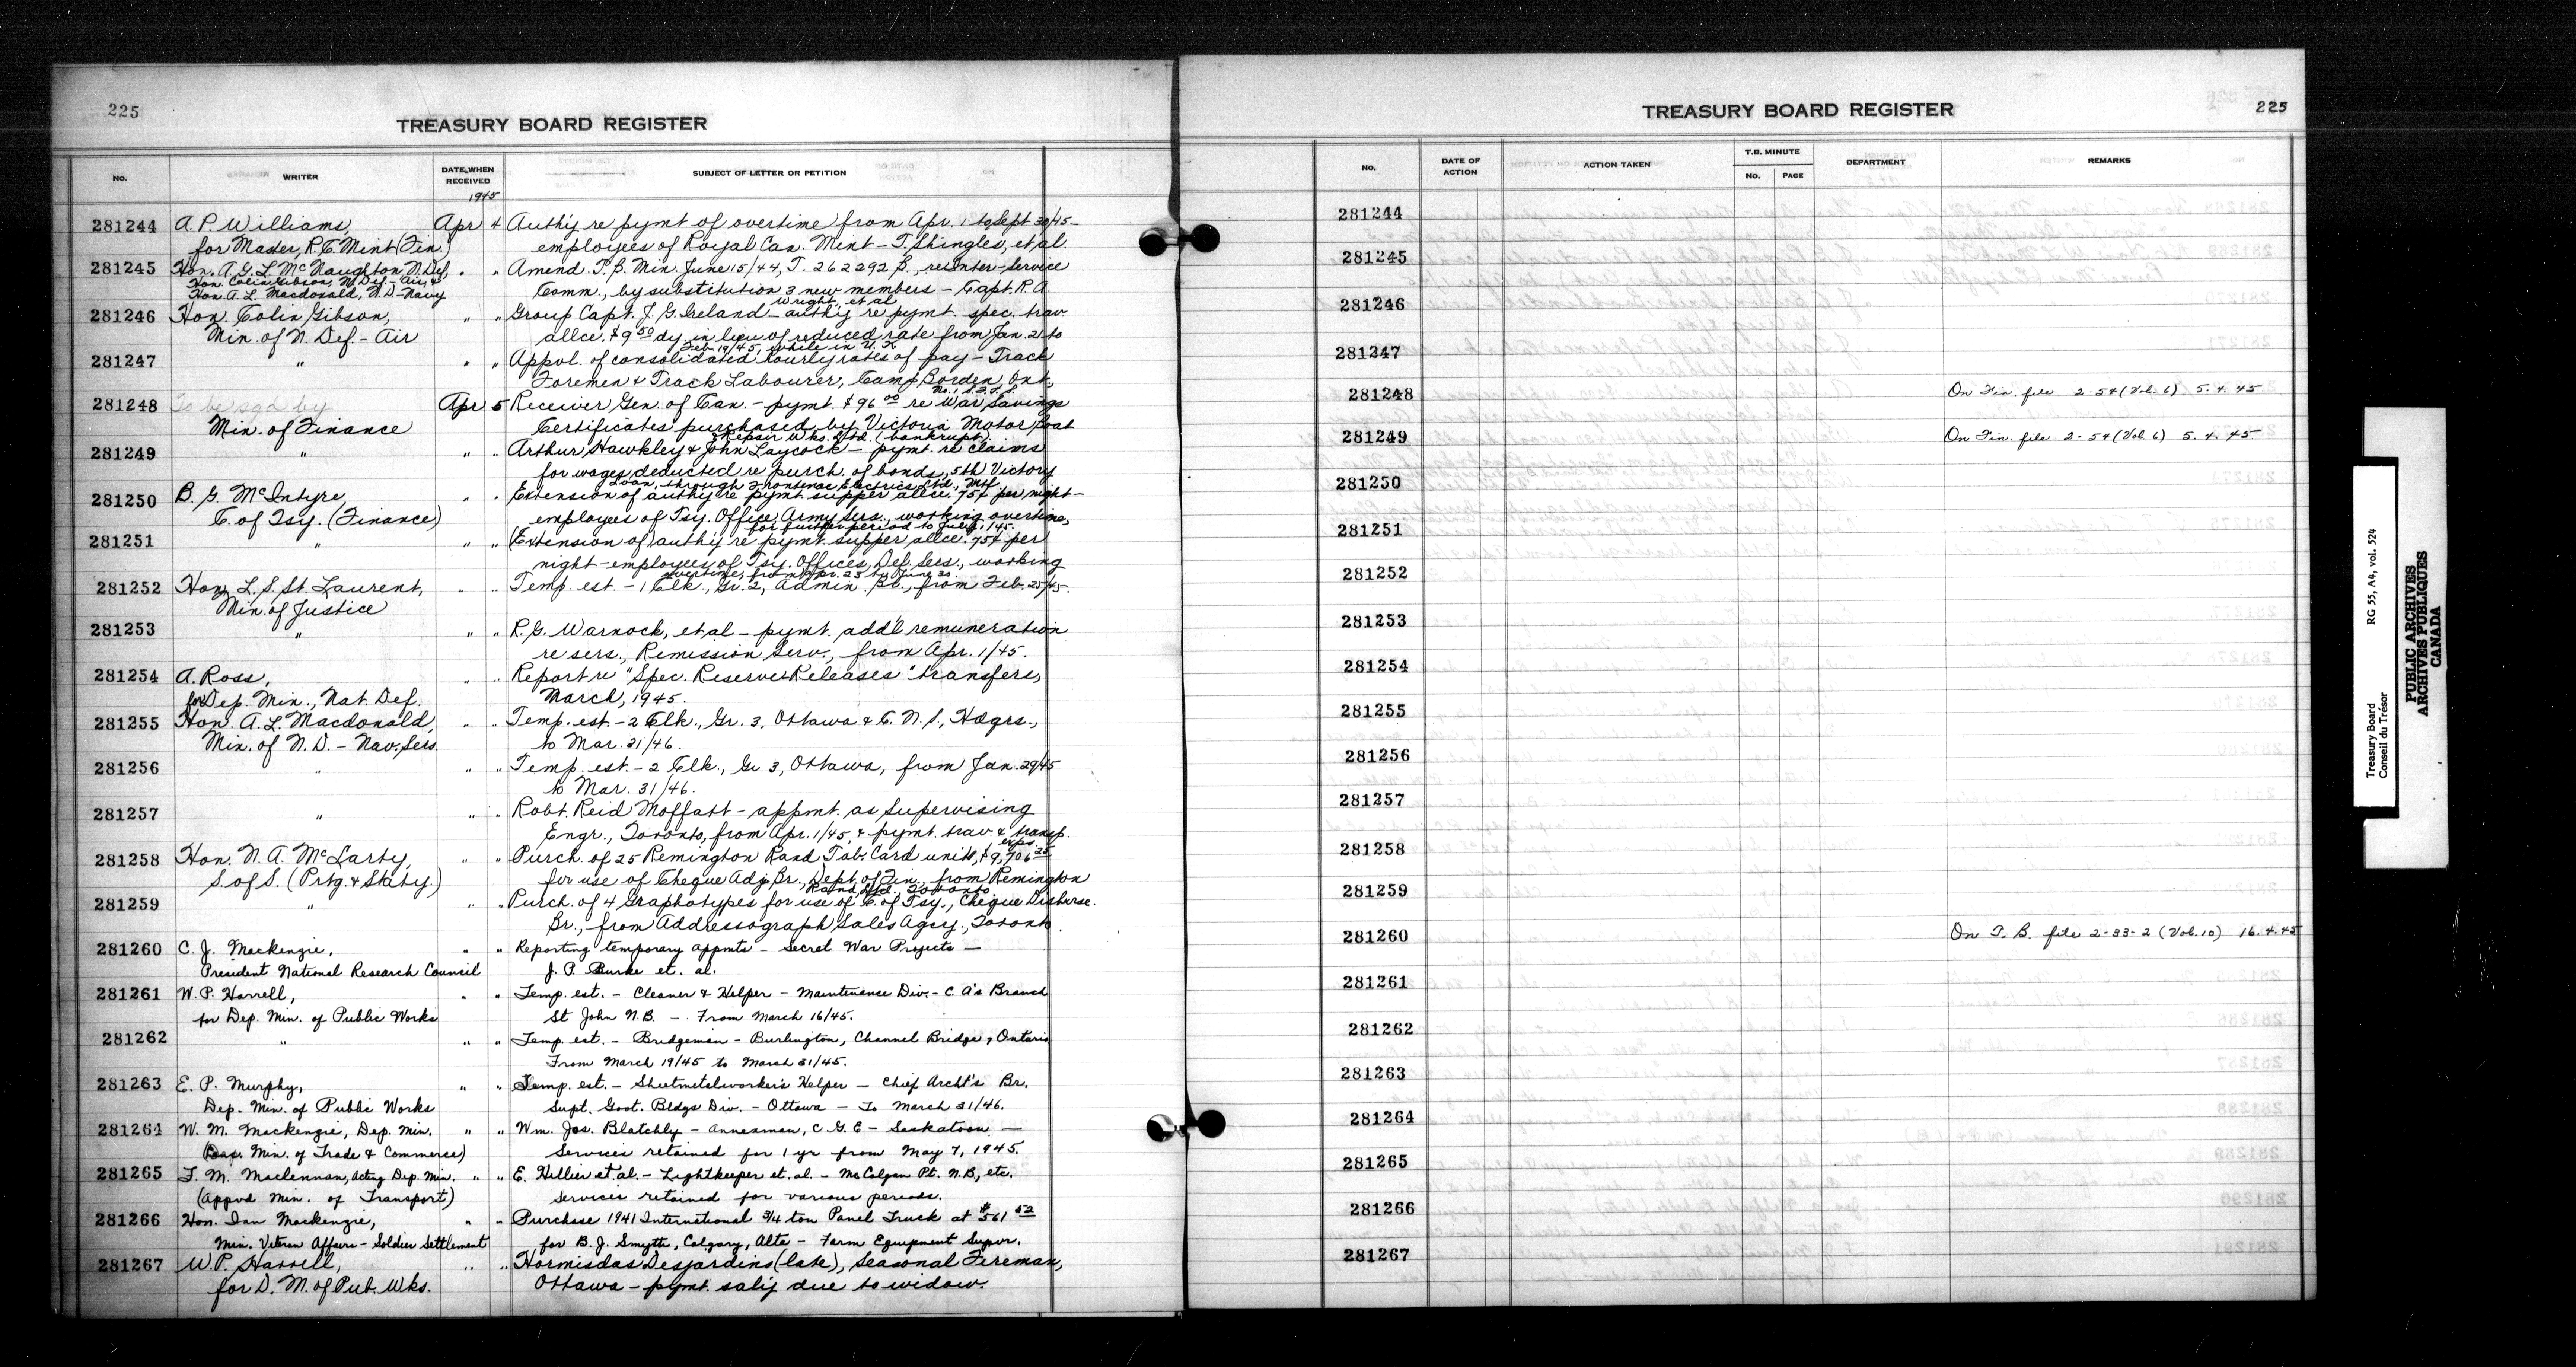 225
TREASURY BOARD REGISTER
No.
WRITER
DATE WHEN RECEIVED
SUBJECT OF LETTER OR PETITION
1945
281244 A. P. Williams, Apr 4 Auth'y re pymt of overtime from Apr. 1 to Sept 30/45 -
for Master, R. C. Mint (Fin.) employees of Royal Can. Mint - T. Shingles, et al.
281245 Hon. A. G. L. McNaughton, N. Def, " " Amend. T. B. Min. June 15/44, T. 262292 B., re Inter-Service
Hon. Colin Gibson, N. Def. - Air, &
Hon. A. L. Macdonald, N. D - Navy Comm., by substitution 3 new members - Capt. R. A.
Wright, et al
281246 Hon. Colin Gibson, " " Group Capt. J. G. Ireland - auth'y re pymt. spec. trav.
Min. of N. Def. - Air allce. $9 50 dy. in lieu of reduced rate from Jan. 21 to
Feb 19/45, while in U. K.
281247 " " " Appvl. of consolidated hourly rates of pay - Track
Foremen & Track Labourer, Camp Borden, Ont.,
No. 1 S.F.T.S.
281248 To be sgd by Apr 5 Receiver Gen. of Can. - pymt. $96 00 re War Savings
Min. of Finance Certificates purchased by Victoria Motor Boat
& Repair Wks. Ltd. (bankrupt).
281249 " " " Arthur Hawkley & John Laycock - pymt. re claims
for wages deducted re purch. of bonds, 5th Victory
Loan, through Frontenac Electrics Ltd., Mtl
281250 B. G. McIntyre, " " Extension of auth'y re pymt supper allce. 75¢ per night -
C. of Tsy. (Finance) employees of Tsy. Office, Army Sers., working overtime,
for further period to July 1/45.
281251 " " " (Extension of) auth'y re pymt. supper allce. 75¢ per
night - employees of Tsy. Offices, Def. Sers., working
overtime, from Apr. 23 to June 30.
281252 Hon. L. S. St. Laurent, " " Temp. est. - 1 Clk., Gr. 2, Admin. Br., from Feb. 25/45.
Min. of Justice
281253 " " " R. G. Warnock, et al - pymt. add'l remuneration
re sers., Remission Serv., from Apr. 1/45.
281254 A. Ross, " " Report re "Spec. Reserve Releases" transfers,
for Dep. Min., Nat. Def. March, 1945.
281255 Hon. A. L. Macdonald, " " Temp. est. - 2 Clk., Gr. 3, Ottawa & C. N. S., Hdqrs.,
Min. of N. D. - Nav. Sers. to Mar. 31/46.
281256 " " " Temp. est. - 2 Clk., Gr. 3, Ottawa, from Jan. 29/45
to Mar. 31/46.
281257 " " " Robt. Reid Moffatt - appmt. as Supervising
Engr., Toronto, from Apr. 1/45, & pymt. trav. & transp.
exps.
281258 Hon. N. A. McLarty, " " Purch. of 25 Remington Rand Tab. Card units, $9,706 25
S. of S. (Prtg. & Staty.) for use of Cheque Adj. Br., Dept. of Fin., from Remington
Rand Ltd., Toronto
281259 " " " Purch. of 4 Graphotypes for use of C. of Tsy., Cheque Disburse.
Br., from Addressograph Sales Agcy., Toronto.
281260 C. J. Mackenzie, " " Reporting temporary appmts - Secret War Projects -
President National Research Council J. P. Burke et. al.
281261 W. P. Harrell, " " Temp. est. - Cleaner & Helper - Maintenance Div. - C. A's Branch
for Dep. Min. of Public Works St John N.B. - From March 16/45.
281262 " " " Temp. est. - Bridgeman - Burlington, Channel Bridge, Ontario
From March 19/45 to March 31/45.
281263 E. P. Murphy, " " Temp. est. - Sheetmetalworker's Helper - Chief Archt's Br.
Dep. Min. of Public Works Supt. Govt. Bldgs Div. - Ottawa - To March 31/46.
281264 W. M. Mackenzie, Dep. Min. " " Wm. Jos. Blatchly - Annexman, C. G. E - Saskatoon -
Min. of Trade & Commerce) Services retained for 1 yr from May 7, 1945.
281265 F. M. Maclennan, Acting Dep. Min. " " E. Hillier et. al. - Lightkeeper et. al - McColgan Pt. N.B, etc.
(Appvd Min. of Transport) Services retained for various periods.
281266 Hon. Ian Mackenzie, " " Purchase 1941 International 3/4 ton Panel Truck at $561 52
Min. Veteran Affairs - Soldier Settlement for B. J. Smyth, Calgary, Alta - Farm Equipment Supvr.
281267 W. P. Harrell, " " Hormisdas Desjardins (late), Seasonal Fireman,
for D. M. of Pub. Wks. Ottawa - pymt. sal'y due to widow.
TREASURY BOARD REGISTER
225
No.
DATE OF ACTION
ACTION TAKEN
T.B. MINUTE
No. PAGE
DEPARTMENT
REMARKS
281244
281245
281246
281247
281248 On Fin. file 2-54 (Vol. 6) 5. 4. 45
281249 On Fin. file 2-54 (Vol. 6) 5. 4. 45
281250
281251
281252
281253
281254
281255
281256
281257
281258
281259
281260 On T. B. file 2-33-2 (Vol. 10) 16. 4. 45
281261
281262
281263
281264
281265
281266
281267
Treasury Board RG 55, A4, vol. 524
Conseil du Trésor
PUBLIC ARCHIVES
ARCHIVES PUBLIQUES
CANADA